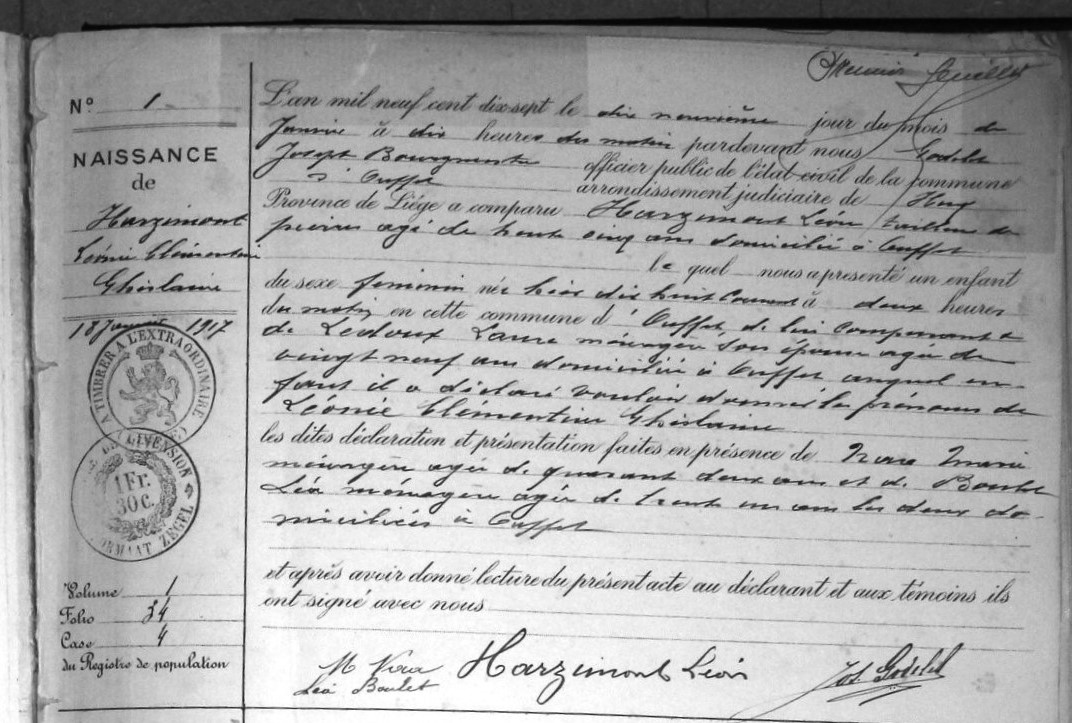 Premier feuillet
N° 1
NAISSANCE
de
Harzimont
Léonie Clémentine
Ghislaine
18 Janvier 1917
A TIMBRER A L'EXTRAORDINAIRE
1 Fr.
30 C.
ZEGEL
Volume 1
Folio 34
Case 4
du Registre de population
L'an mil neuf cent dix-sept le dix neuvième jour du mois de
Janvier à dix heures du matin pardevant nous Godelet
Joseph Bourgmestre officier public de l'état civil de la commune
d'Ouffet arrondissement judiciaire de Huy
Province de Liége a comparu Harzimont Léon tailleur de
pierres agé de trente cinq ans domicilié à Ouffet
le quel nous a presenté un enfant
du sexe feminin née hier dix huit courant à deux heures
du matin en cette commune d'Ouffet de lui comparant et
de Ledoux Laure ménagère son épouse agée de
vingt neuf ans domiciliée à Ouffet auquel en-
fant il a déclaré vouloir donner les prénoms de
Léonie Clementine Ghislaine
les dites déclaration et présentation faites en présence de Marie
ménagère agée de quarant deux ans et de Boulet
Léa ménagère agée de trente un ans les deux do-
miciliées à Ouffet
et après avoir donné lecture du présent acte au déclarant et aux témoins ils
ont signé avec nous
M
Léa Boulet
Harzimont Léon
Jos. Godelet